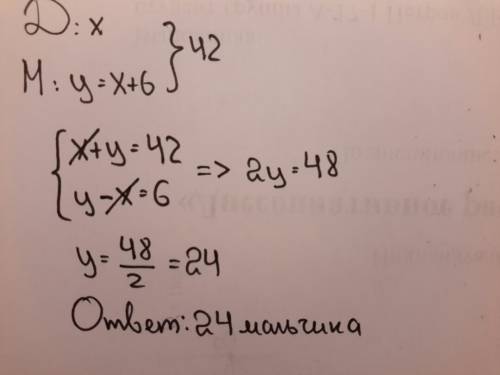 D: x
M: y = x+6 } 42
{ x+y=42
y-x=6 => 2y=48
y = 48/2 = 24
Ответ: 24 мальчика